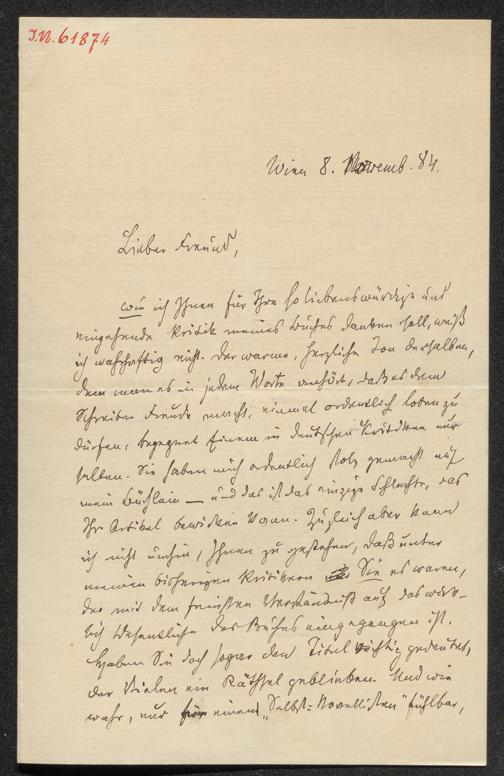 I.N. 61874
Wien 8. Novemb. 84.
Lieber Freund,
wie ich Ihnen für Ihre so liebenswürdige und
eingehende Kritik meines Buches danken soll, weiß
ich wahrhaftig nicht. Der warme, herzliche Ton derselben,
dem man es in jedem Worte anhört, daß es dem
Schreiber Freude macht, einmal ordentlich loben zu
dürfen, begegnet Einem in deutschen Kritiken nur
selten. Sie haben mich ordentlich stolz gemacht auf
mein Büchlein – und das ist das einzige Schlechte, das
Ihr Artikel bewirken kann. Zugleich aber kann
ich nicht umhin, Ihnen zu gestehen, daß unter
meinen bisherigen Kritikern Sie es waren,
der mit dem feinsten Verständniß auf das wirk-
lich Wesentliche des Buches eingegangen ist.
Haben Sie doch sogar den Titel richtig gedeutet,
der Vielen ein Räthsel geblieben. Und wie
wahr, nur einem „Selbst-Novellisten" fühlbar,